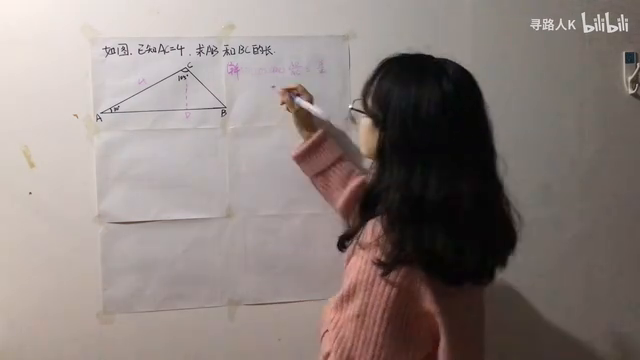 寻路人K bilibili
如图，已知AC=4，求AB和BC的长.
C
105°
A 30°
D
B
解